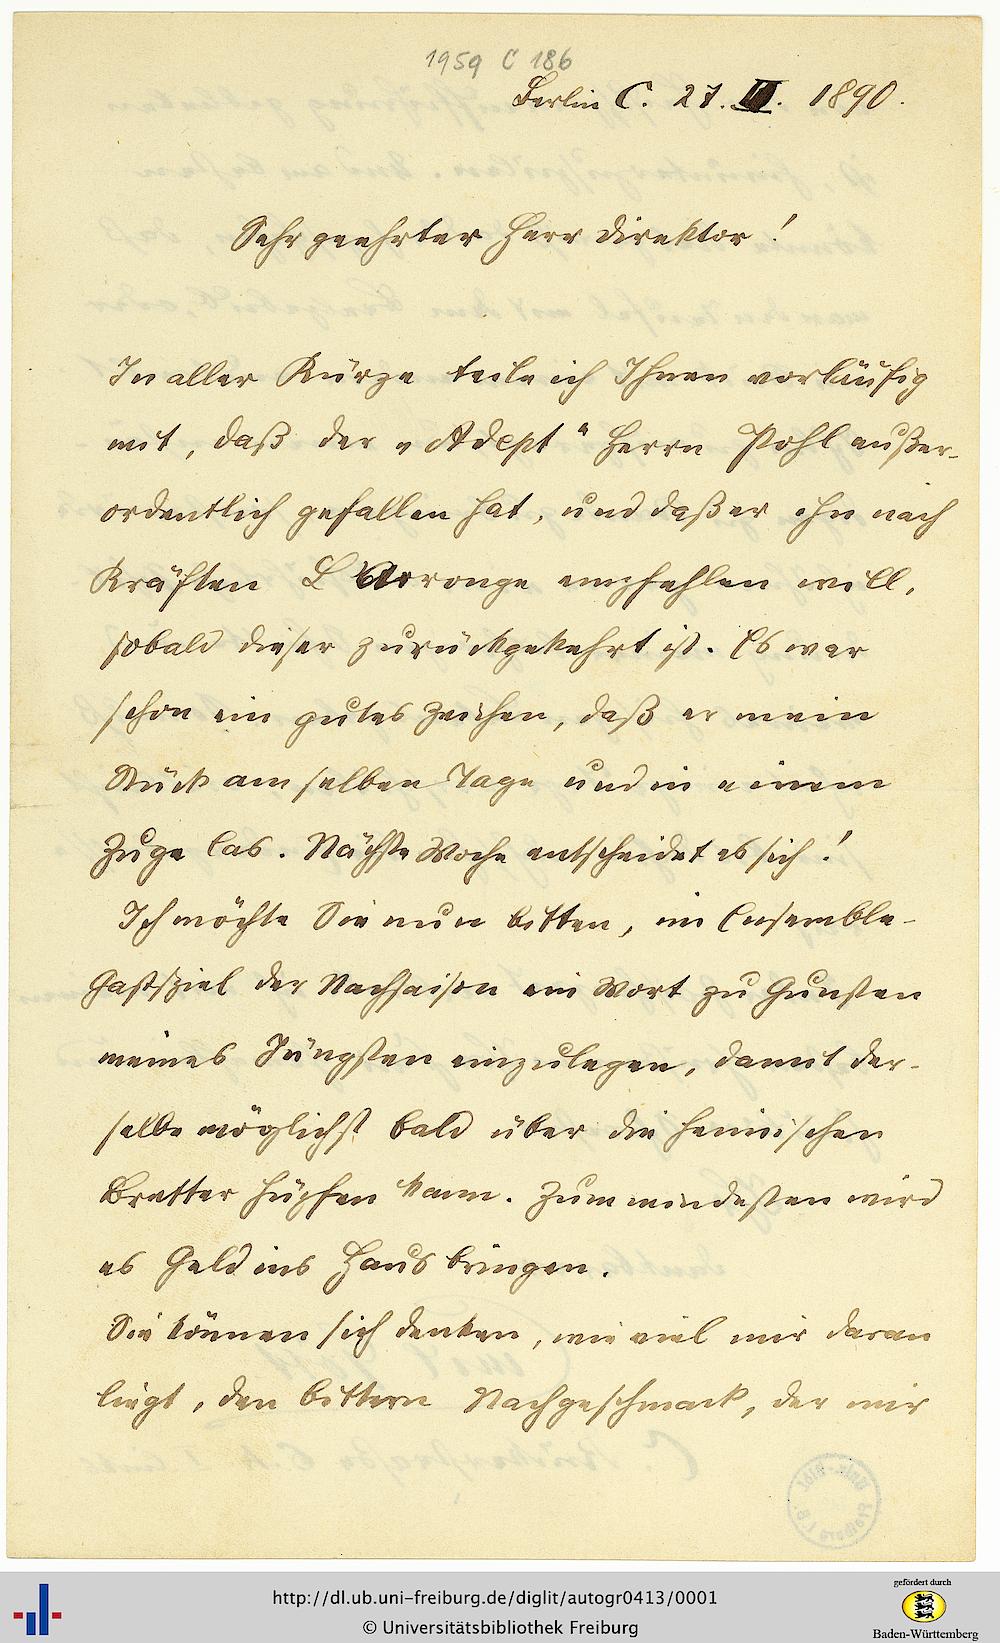 1959 C 186
Berlin C. 27. II. 1890.
Sehr geehrter Herr Direktor!
In aller Kürze teile ich Ihnen vorläufig
mit, daß der „Adept“ Herrn Pohl außer-
ordentlich gefallen hat, und daß er ihn nach
Kräften L'Arronge empfehlen will,
sobald dieser zurückgekehrt ist. Es war
schon ein gutes Zeichen, daß er mein
Stück am selben Tage und in einem
Zuge las. Nächste Woche entscheidet es sich!
Ich möchte Sie nun bitten, im Ensemble-
Gastspiel der Nachsaison ein Wort zu Gunsten
meines Jüngsten einzulegen, damit der-
selbe möglichst bald über die heimischen
Bretter hüpfen kann. Zum mindesten wird
es Geld ins Haus bringen.
Sie können sich denken, wie viel mir daran
liegt, den bittern Nachgeschmack, der mir
http://dl.ub.uni-freiburg.de/diglit/autogr0413/0001
© Universitätsbibliothek Freiburg
gefördert durch
Baden-Württemberg